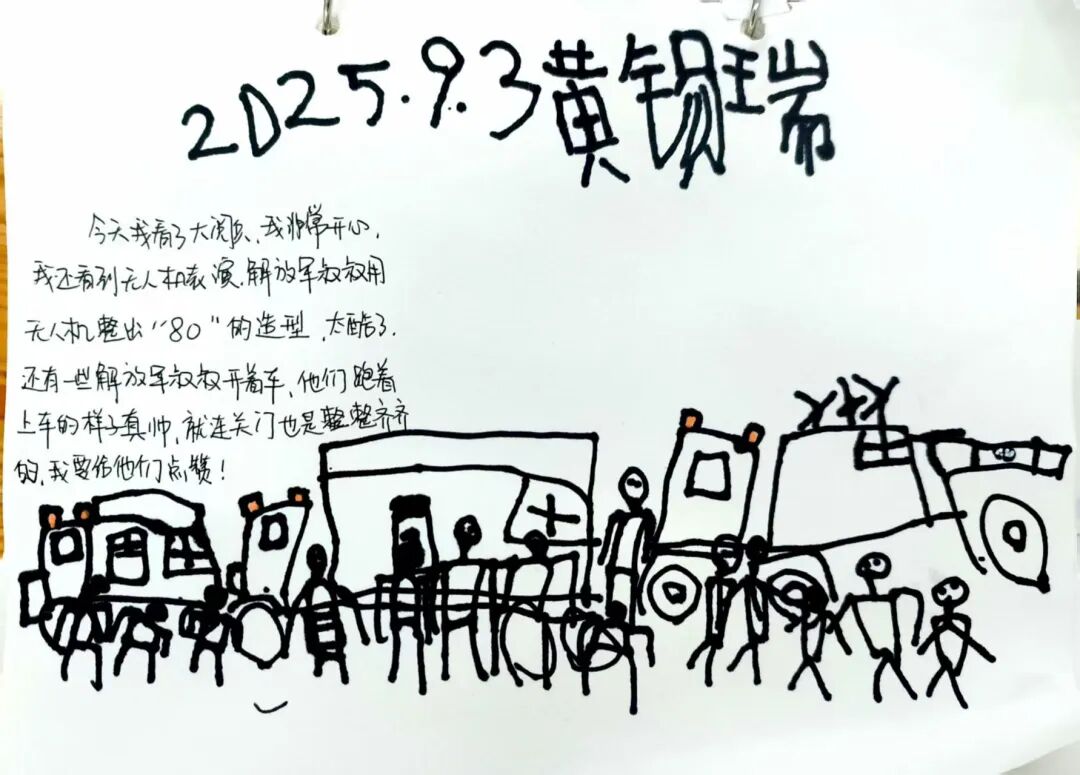 2025.9.3黄锡瑞
今天我看了大阅兵、我非常开心,
我还看到无人机表演.解放军叔叔用
无人机整出“80”的造型,太酷了.
还有一些解放军叔叔开着车、他们跑着
上车的样子真帅,就连关门也是整整齐齐
的,我要给他们点赞!